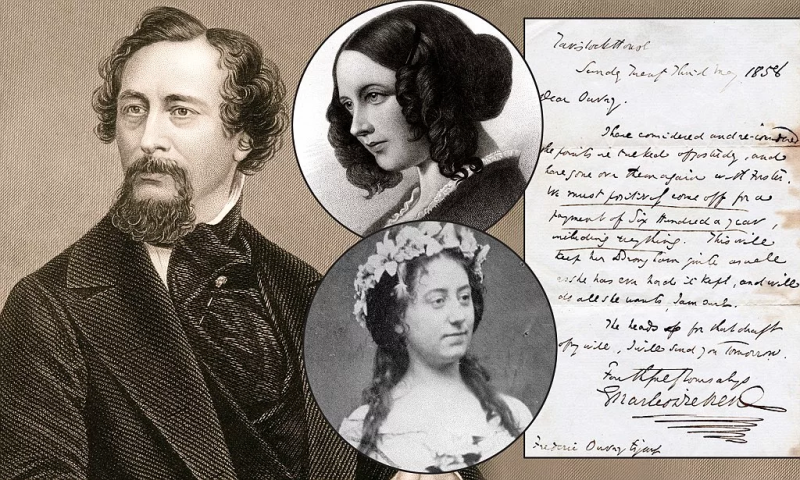 Tavistock House
Sunday Third May 1858
Dear Ouvry.
I have considered and re-considered
the points we talked of yesterday, and
have gone over them again with Forster.
We must positively come off for a
payment of Six Hundred a year,
including everything. This will
keep her Brougham quite as well
as she has ever had it kept, and will
do all she wants, I am sure.
The heads for that draft
of my will, I will send you tomorrow.
Faithfully Yours always
Charles Dickens
Frederic Ouvry Esquire